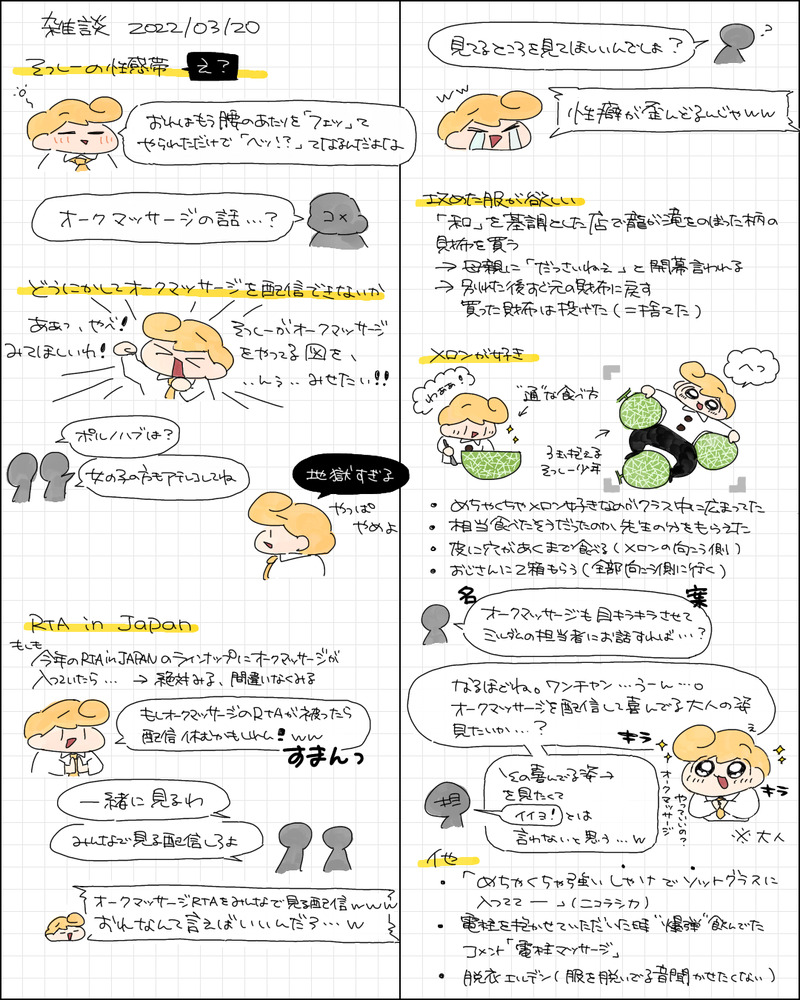 雑談 2022/03/20
そっしーの性感帯
え?
おれはもう腰のあたりを「フェッ」て
やられただけで「ヘッ!?」てなるんだよな
コメ
オークマッサージの話…?
どうにかしてオークマッサージを配信できないか
あぁっ、やべ!
みてほしいわ!
そっしーがオークマッサージ
をやってる図を、
..んぅ..みせたい!!
ポルノハブは?
女の子の方もアテレコしてね
地獄すぎる
やっぱ
やめよ
RTA in Japan
もしも
今年のRTA in JAPANのラインナップにオークマッサージが
入っていたら… → 絶対みる、間違いなくみる
もしオークマッサージのRTAが被ったら
配信休むかもしれん!ww
すまんっ
一緒に見るわ
みんなで見る配信しろよ
オークマッサージRTAをみんなで見る配信www
おれなんて言えばいいんだろ…w
見てるところを見てほしいんでしょ?
?
ww
性癖が歪んどるんじゃww
攻めた服が欲しい
「和」を基調とした店で龍が滝をのぼった柄の
財布を買う
→ 母親に「だっさいねぇ」と開幕言われる
→ 別れた後すぐ元の財布に戻す
買った財布は投げた(=捨てた)
メロンが好き
わぁぁ!
"通"な食べ方
へっ
3玉抱える
そっしー少年
・めちゃくちゃメロン好きなのがクラス中に広まってた
・相当食べたそうだったのか先生の分をもらえた
・皮に穴があくまで食べる(メロンの向こう側)
・おじさんに2箱もらう(全部向こう側に行く)
名
案
オークマッサージも目キラキラさせて
ミルダムの担当者にお話すれば…?
なるほどね。ワンチャン…うーん…。
オークマッサージを配信して喜んでる大人の姿
見たいか…?
え
キラ
キラ
オークマッサージ
やっていいの?
※大人
担
その喜んでる姿→
を見たくて
イイヨ!とは
言わないと思う…w
他
・「めちゃくちゃ強いしゃけでゾットグラスに
入ってて ー 」(ニコラシカ)
・電柱を抱かせていただいた時"爆弾"飲んでた
コメント「電柱マッサージ」
・脱衣エルデン(服を脱いでる音聞かせたくない)